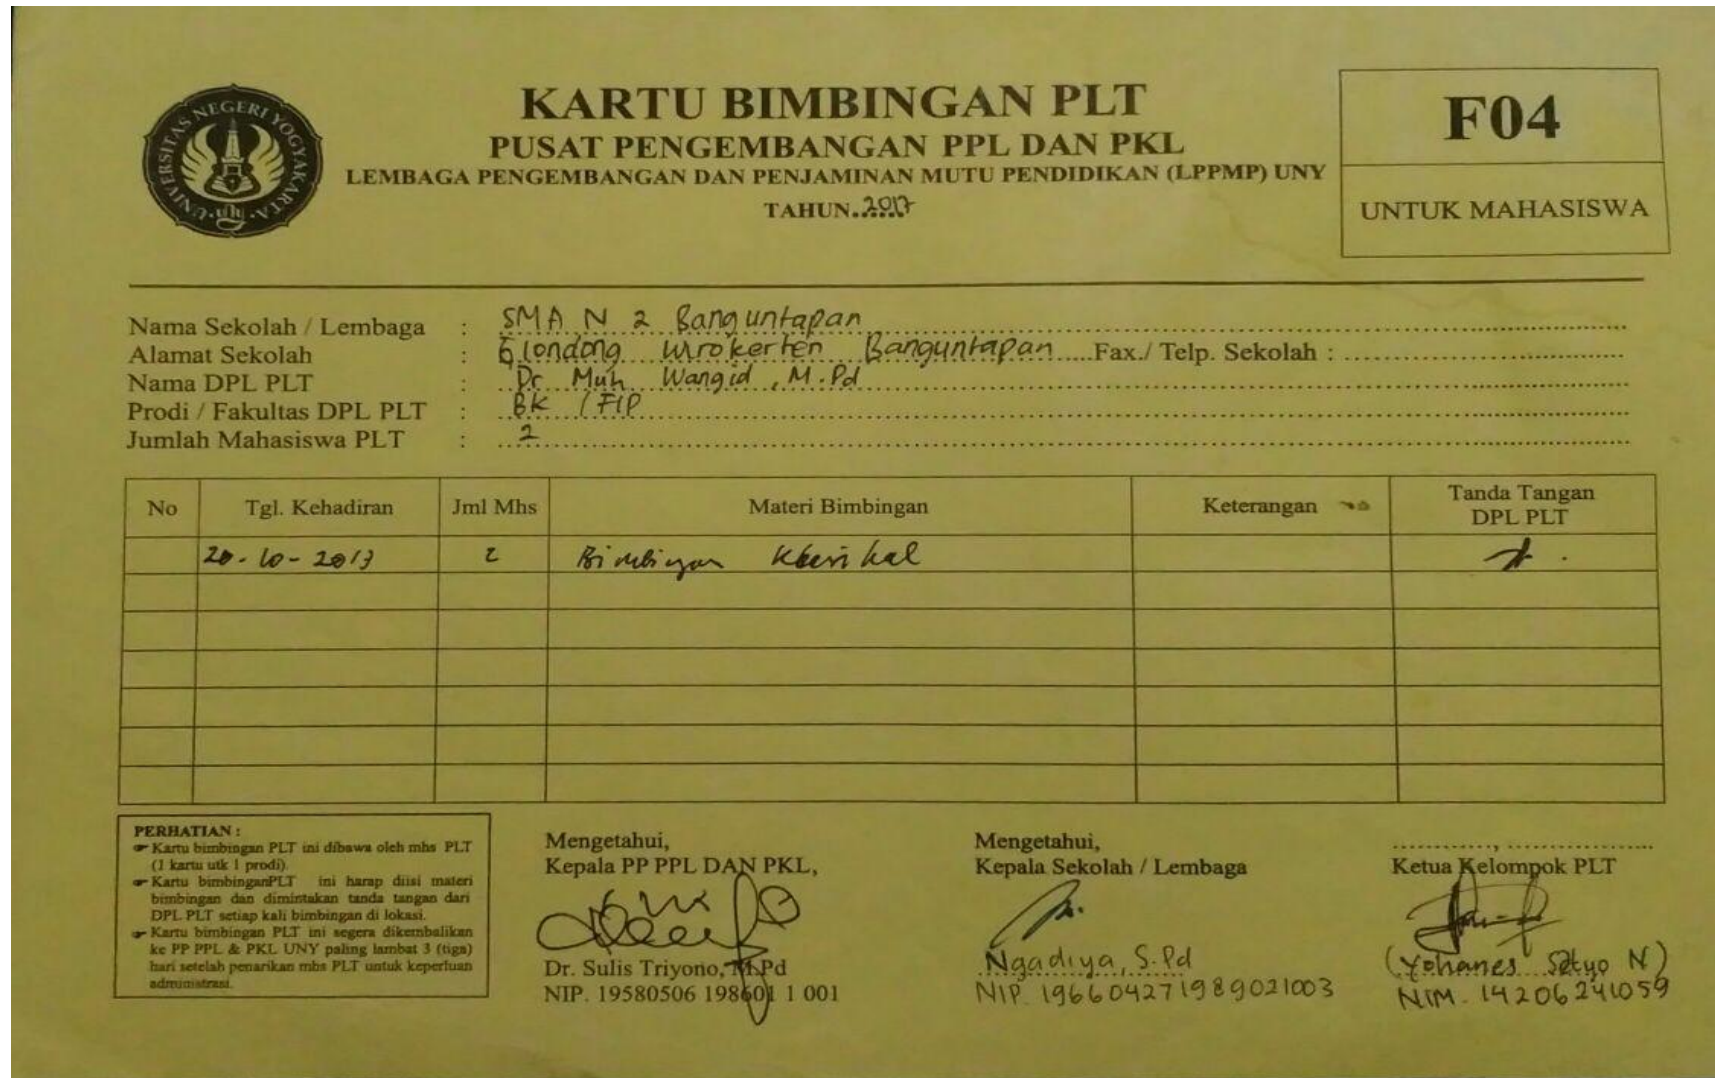 UNIVERSITAS NEGERI YOGYAKARTA
KARTU BIMBINGAN PLT
PUSAT PENGEMBANGAN PPL DAN PKL
LEMBAGA PENGEMBANGAN DAN PENJAMINAN MUTU PENDIDIKAN (LPPMP) UNY
TAHUN..2017
F04
UNTUK MAHASISWA
Nama Sekolah / Lembaga : SMA N 2 Banguntapan
Alamat Sekolah : Glondong Wirokerten Banguntapan Fax./ Telp. Sekolah :
Nama DPL PLT : Dr. Muh Wangid, M.Pd
Prodi / Fakultas DPL PLT : BK / FIP
Jumlah Mahasiswa PLT : 2
No Tgl. Kehadiran Jml Mhs Materi Bimbingan Keterangan Tanda Tangan
DPL PLT
20-10-2017 2 Bimbingan
PERHATIAN :
☞ Kartu bimbingan PLT ini dibawa oleh mhs PLT
(1 kartu utk 1 prodi).
☞ Kartu bimbinganPLT ini harap diisi materi
bimbingan dan dimintakan tanda tangan dari
DPL PLT setiap kali bimbingan di lokasi.
☞ Kartu bimbingan PLT ini segera dikembalikan
ke PP PPL & PKL UNY paling lambat 3 (tiga)
hari setelah penarikan mhs PLT untuk keperluan
administrasi.
Mengetahui,
Kepala PP PPL DAN PKL,
Dr. Sulis Triyono, M.Pd
NIP. 19580506 198601 1 001
Mengetahui,
Kepala Sekolah / Lembaga
Ngadiya, S.Pd
NIP. 196604271989021003
Ketua Kelompok PLT
(Yohanes Setyo N)
NIM. 14206241059